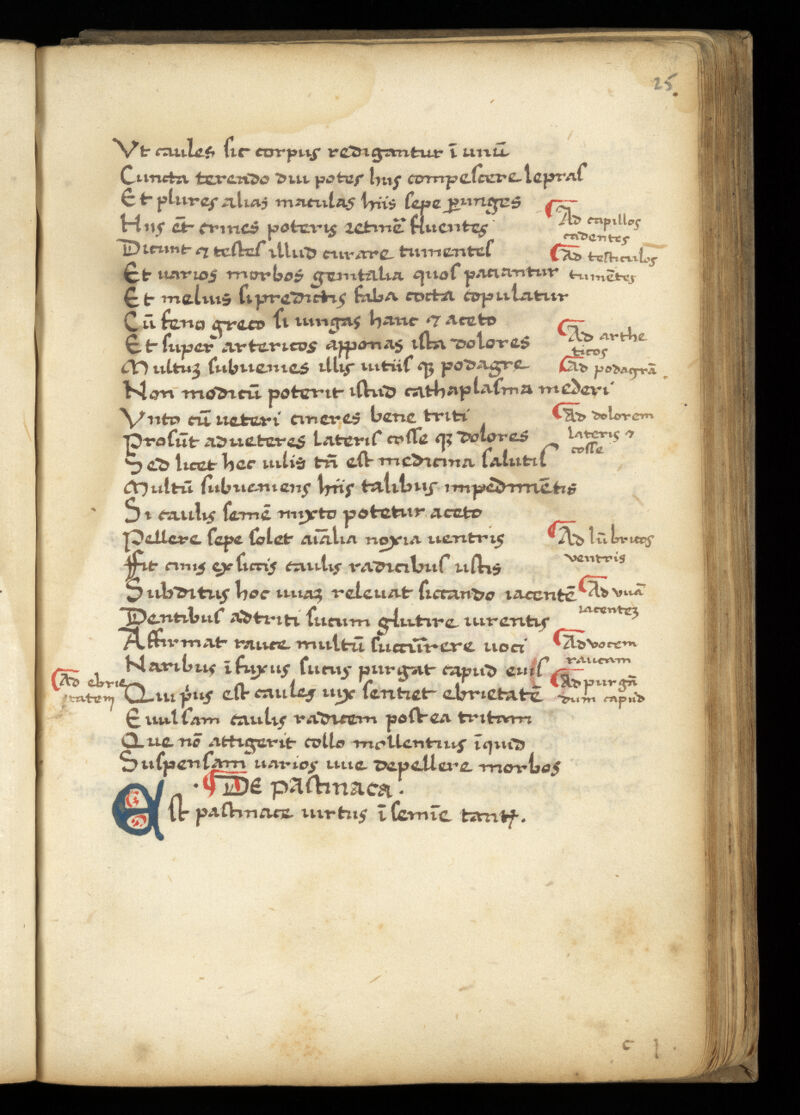 25.
Vt caules sic corpus redigantur ī unū
Cuncta terendo diu potes hus compescere lepras
Et plures alias maculas hiis sepe perunges
Hiis ēt crines poteris retinē fluentes
Ad capillos
cadentes
Dicunt ⁊ testes illud curare tumentes
Ad testiculos
tumētes
Et uarios morbos genitalia quos paciantur
Et melius si predictis faba cocta copulatur
Cū feno greco si iungas hanc ⁊ aceto
Et super artericos apponas ista dolores
Ad arthe
ticos
Multuꝫ subuenies illis uitiis qꝫ podagre
Ad podagrā
Non modicū poterit istud cathaplasma mederi
Vnto cū ueteri cineres bene triti
Ad dolorem
lateris ⁊
coste
Prosūt ad ueteres lateris coste qꝫ dolores
Sed licet hec uilis tn̄ est medicina salutis
Multū subueniens hiis talibus impedimētis
Si caulis semē mixto potetur aceto
Pellere sepe solet aīalia noxia uentris
Ad lūbricos
ventris
Fit cinis ex siccis caulis radicibus ustis
Subditus hoc uuaꝫ releuat siccando iacentē
Ad vuā
iacenteꝫ
Dentibus adtriti sucum glutire uirentis
Affirmat rauce multū succurrere uoci
Ad vocem
raucam
Naribus īfuxus sucus purgat capud eius
Ad purgā
dum capud
Ad ebrie
tatem
Qui prius est caules uix sentiet ebrietatē
Euulsam caulis radicem postea tritam
Que nō attigerit collo mollentius īquid
Suspensam uarios uue depellere morbos
De pastinaca.
Est pastinace uirtus ī semīe tantꝫ.
c 1